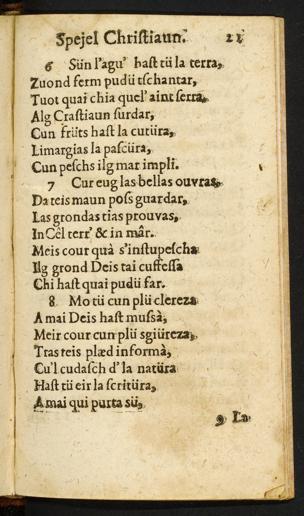 Spejel Christiaun. 21
6 Sün l'agu' hast tü la terra,
Zuond ferm pudü tschantar,
Tuot quai chia quel' aint serra,
Alg Crastiaun surdar,
Cun früts hast la cutüra,
Limargias la pascüra,
Cun peschs ilg mar impli.
7 Cur eug las bellas ouvras,
Da teis maun poss guardar,
Las grondas tias prouvas,
In Cêl terr' & in mâr.
Meis cour quà s'instupescha
Ilg grond Deis tai cuffessa
Chi hast quai pudü far.
8 Mo tü cun plü clereza
A mai Deis hast mussà,
Meir cour cun plü sgiüreza,
Tras teis plæd informà,
Cu'l cudasch d'la natüra
Hast tü eir la scritüra,
A mai qui purta sü,
9 La